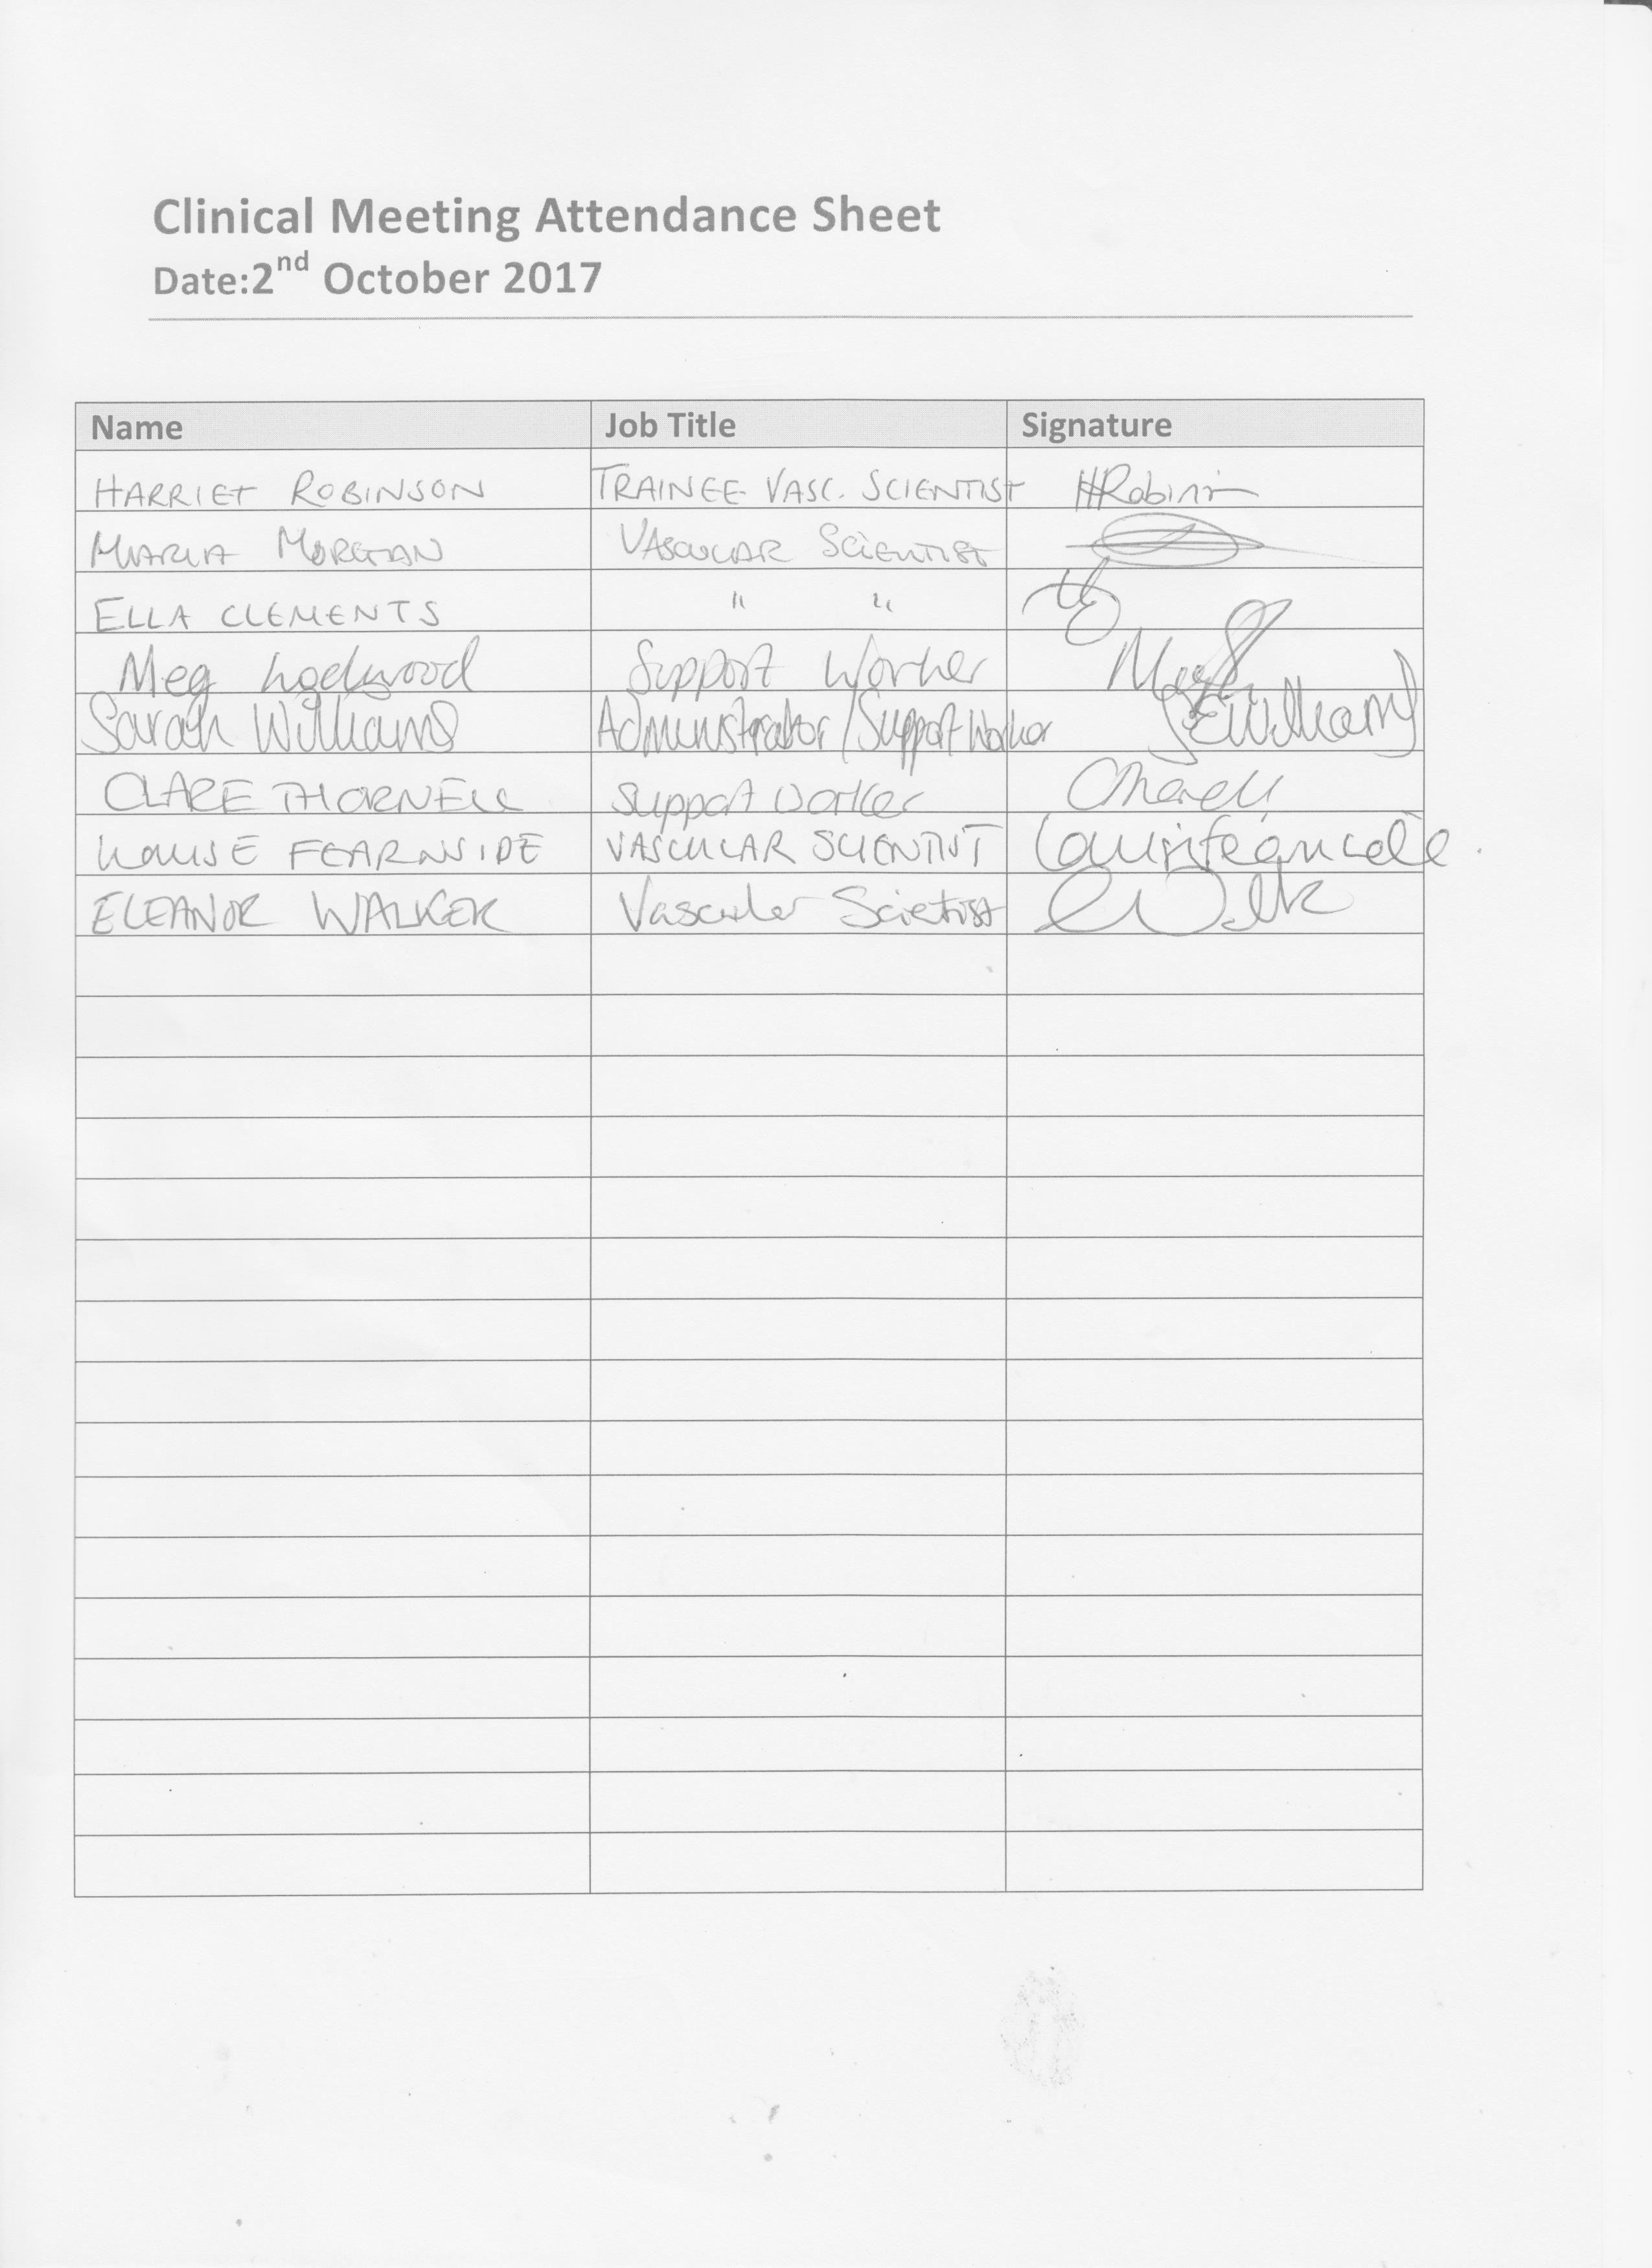 Clinical Meeting Attendance Sheet
Date:2nd October 2017
Name Job Title Signature
HARRIET ROBINSON TRAINEE VASC. SCIENTIST HRobin
MARIA MORGAN VASCULAR SCIENTIST
ELLA CLEMENTS " "
Meg Support Worker
Sarah Williams Administrator/Support Worker SEWilliams
CLARE THORNELL Support Worker
LOUISE FEARNSIDE VASCULAR SCIENTIST
ELEANOR WALKER Vascular Scientist